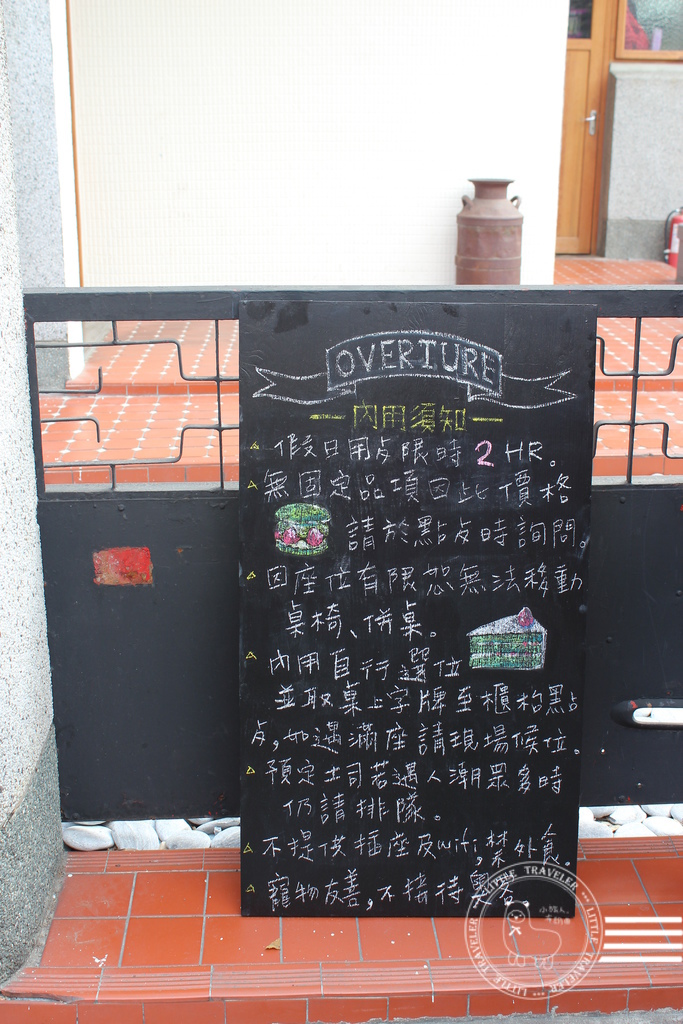 OVERTURE
內用須知
假日用餐限時2HR。
無固定品項因此價格
請於點餐時詢問。
因座位有限恕無法移動
桌椅、併桌。
內用自行選位
並取桌上字牌至櫃枱點
餐,如遇滿座請現場候位。
預定土司若遇人潮眾多時
仍請排隊。
不提供插座及wifi,禁外食。
寵物友善,不接待奧客。
LITTLE TRAVELER
小旅人